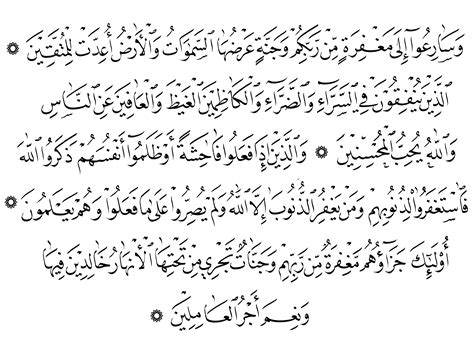 وَسَارِعُوا إِلَىٰ مَغْفِرَةٍ مِّن رَّبِّكُمْ وَجَنَّةٍ عَرْضُهَا السَّمَٰوَاتُ وَالْأَرْضُ أُعِدَّتْ لِلْمُتَّقِينَ ۞
الَّذِينَ يُنفِقُونَ فِي السَّرَّاءِ وَالضَّرَّاءِ وَالْكَاظِمِينَ الْغَيْظَ وَالْعَافِينَ عَنِ النَّاسِ
وَاللَّهُ يُحِبُّ الْمُحْسِنِينَ ۞ وَالَّذِينَ إِذَا فَعَلُوا فَاحِشَةً أَوْ ظَلَمُوا أَنفُسَهُمْ ذَكَرُوا اللَّهَ
فَاسْتَغْفَرُوا لِذُنُوبِهِمْ وَمَن يَغْفِرُ الذُّنُوبَ إِلَّا اللَّهُ وَلَمْ يُصِرُّوا عَلَىٰ مَا فَعَلُوا وَهُمْ يَعْلَمُونَ ۞
أُولَٰئِكَ جَزَاؤُهُم مَّغْفِرَةٌ مِّن رَّبِّهِمْ وَجَنَّاتٌ تَجْرِي مِن تَحْتِهَا الْأَنْهَارُ خَالِدِينَ فِيهَا
وَنِعْمَ أَجْرُ الْعَامِلِينَ ۞